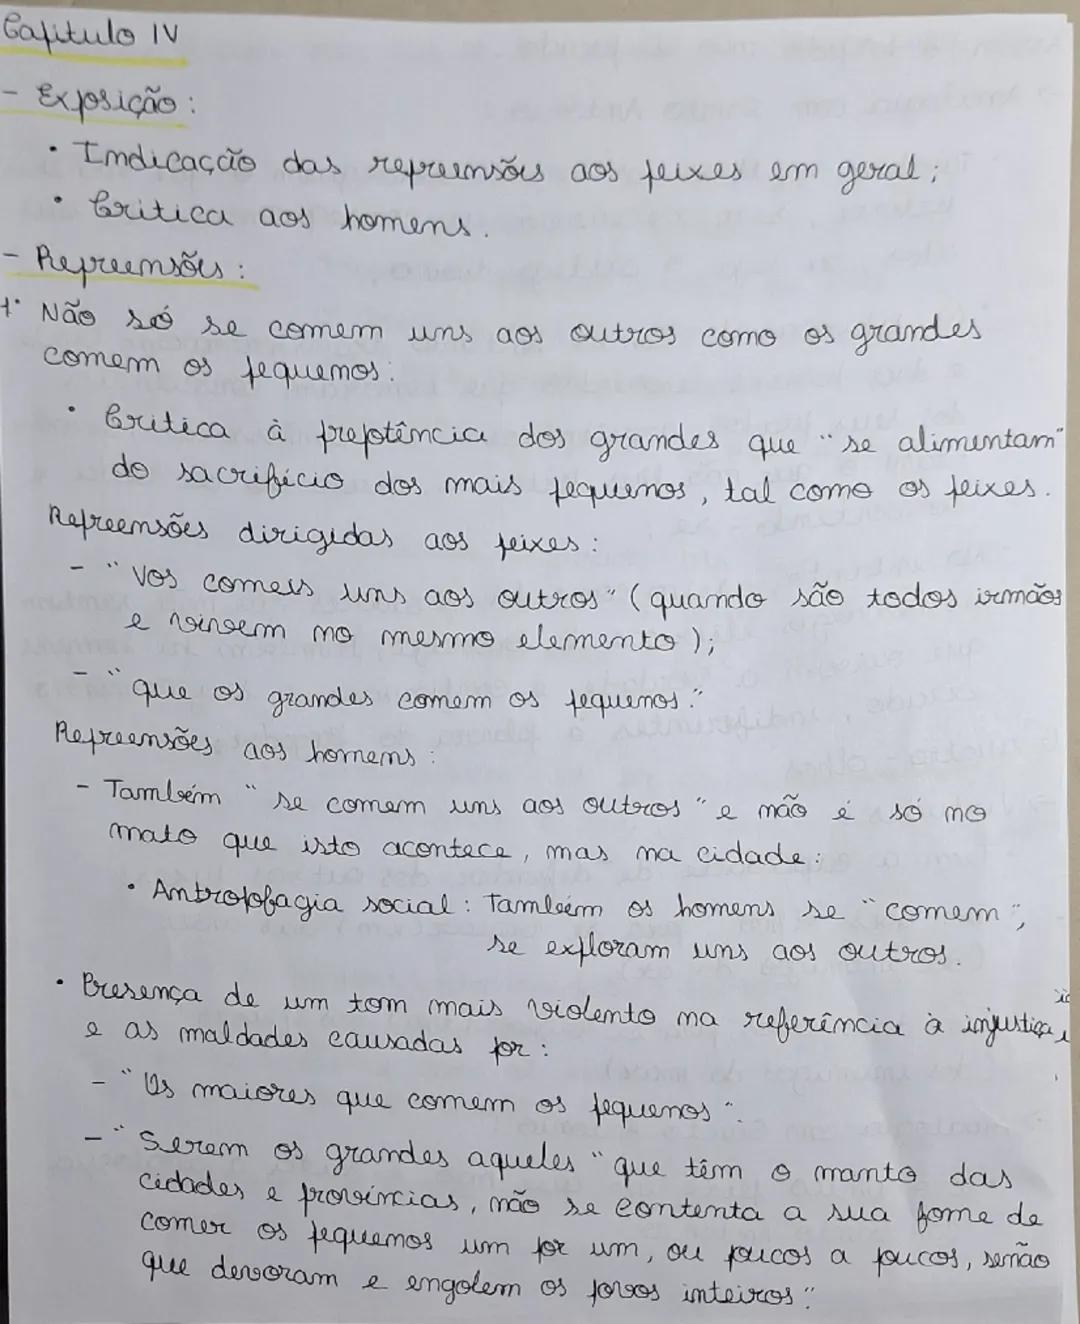 Capitulo IV
- Exposição:
• Indicação das repreensões aos peixes em geral;
• Critica aos homens.
- Repreensões:
1• Não só se comem uns aos outros como os grandes
comem os pequenos:
• Critica à prepotência dos grandes que "se alimentam"
do sacrifício dos mais pequenos, tal como os peixes.
Repreensões dirigidas aos peixes:
- "Vos comeis uns aos outros" (quando são todos irmãos
e vivem no mesmo elemento);
- "que os grandes comem os pequenos."
Repreensões aos homens:
- Também "se comem uns aos outros" e não é só no
mato que isto acontece, mas na cidade:
• Antropofagia social: Também os homens se "comem",
se exploram uns aos outros.
• Presença de um tom mais violento na referência à injustiça,
e as maldades causadas por:
- "Os maiores que comem os pequenos".
- "Serem os grandes aqueles "que têm o manto das
cidades e províncias, não se contenta a sua fome de
comer os pequenos um por um, ou poucos a poucos, senão
que devoram e engolem os povos inteiros"